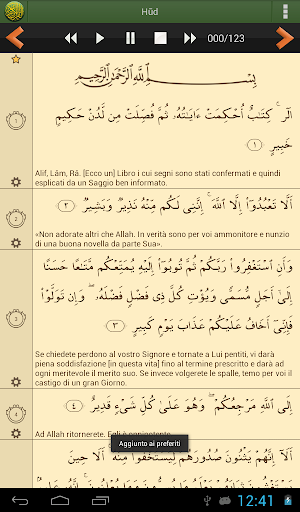 Hūd
000/123
بِسْمِ ٱللَّهِ ٱلرَّحْمَٰنِ ٱلرَّحِيمِ
الٓر ۚ كِتَٰبٌ أُحْكِمَتْ ءَايَٰتُهُۥ ثُمَّ فُصِّلَتْ مِن لَّدُنْ حَكِيمٍ
خَبِيرٍ ١
1
Alif, Lâm, Râ. [Ecco un] Libro i cui segni sono stati confermati e quindi
esplicati da un Saggio ben informato.
أَلَّا تَعْبُدُوٓا۟ إِلَّا ٱللَّهَ ۚ إِنَّنِى لَكُم مِّنْهُ نَذِيرٌ وَبَشِيرٌ ٢
2
«Non adorate altri che Allah. In verità sono per voi ammonitore e nunzio
di una buona novella da parte Sua».
وَأَنِ ٱسْتَغْفِرُوا۟ رَبَّكُمْ ثُمَّ تُوبُوٓا۟ إِلَيْهِ يُمَتِّعْكُم مَّتَٰعًا حَسَنًا
إِلَىٰٓ أَجَلٍ مُّسَمًّى وَيُؤْتِ كُلَّ ذِى فَضْلٍ فَضْلَهُۥ ۖ وَإِن تَوَلَّوْا۟
فَإِنِّىٓ أَخَافُ عَلَيْكُمْ عَذَابَ يَوْمٍ كَبِيرٍ ٣
3
Se chiedete perdono al vostro Signore e tornate a Lui pentiti, vi darà
piena soddisfazione [in questa vita] fino al termine prescritto e darà ad
ogni meritevole il merito suo. Se invece volgerete le spalle, temo per voi il
castigo di un gran Giorno.
إِلَى ٱللَّهِ مَرْجِعُكُمْ ۖ وَهُوَ عَلَىٰ كُلِّ شَىْءٍ قَدِيرٌ ٤
4
Ad Allah ritornerete. Egli è onnipotente.
Aggiunto ai preferiti
أَلَآ إِنَّهُمْ يَثْنُونَ صُدُورَهُمْ لِيَسْتَخْفُوا۟ مِنْهُ ۚ أَلَا حِينَ
12:41